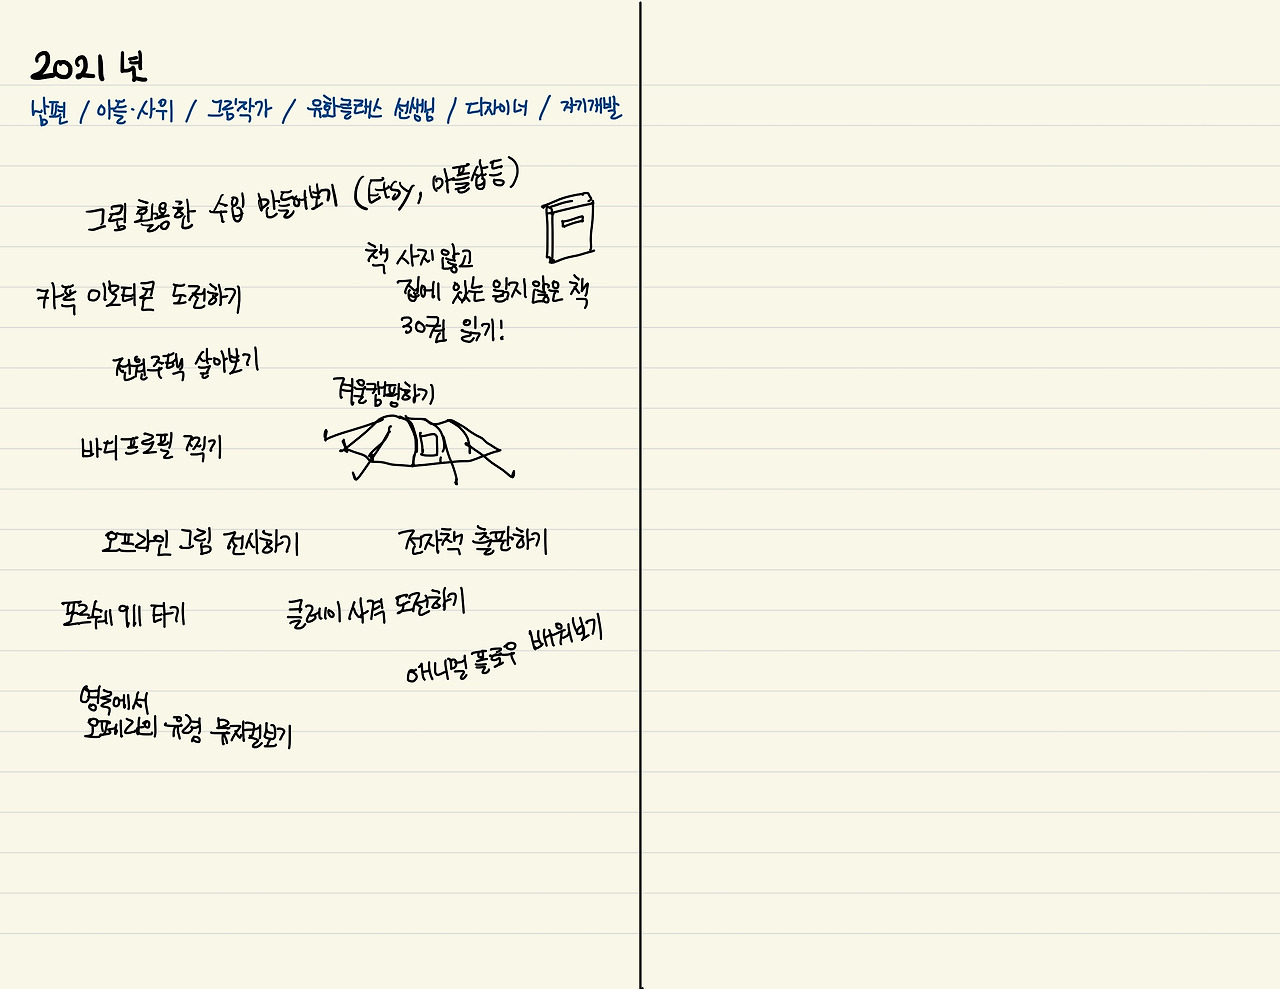 2021 년
남편 / 아들·사위 / 그림작가 / 유화클래스 선생님 / 디자이너 / 자기개발
그림 활용한 수입 만들어보기 (Etsy, 마플샵등)
책 사지 않고
집에 있는 읽지않은 책
30권 읽기!
카톡 이모티콘 도전하기
전원주택 살아보기
겨울캠핑하기
바디프로필 찍기
오프라인 그림 전시하기
전자책 출판하기
포르쉐 911 타기
클레이 사격 도전하기
애니멀 플로우 배워보기
영국에서
오페라의 유령 뮤지컬보기